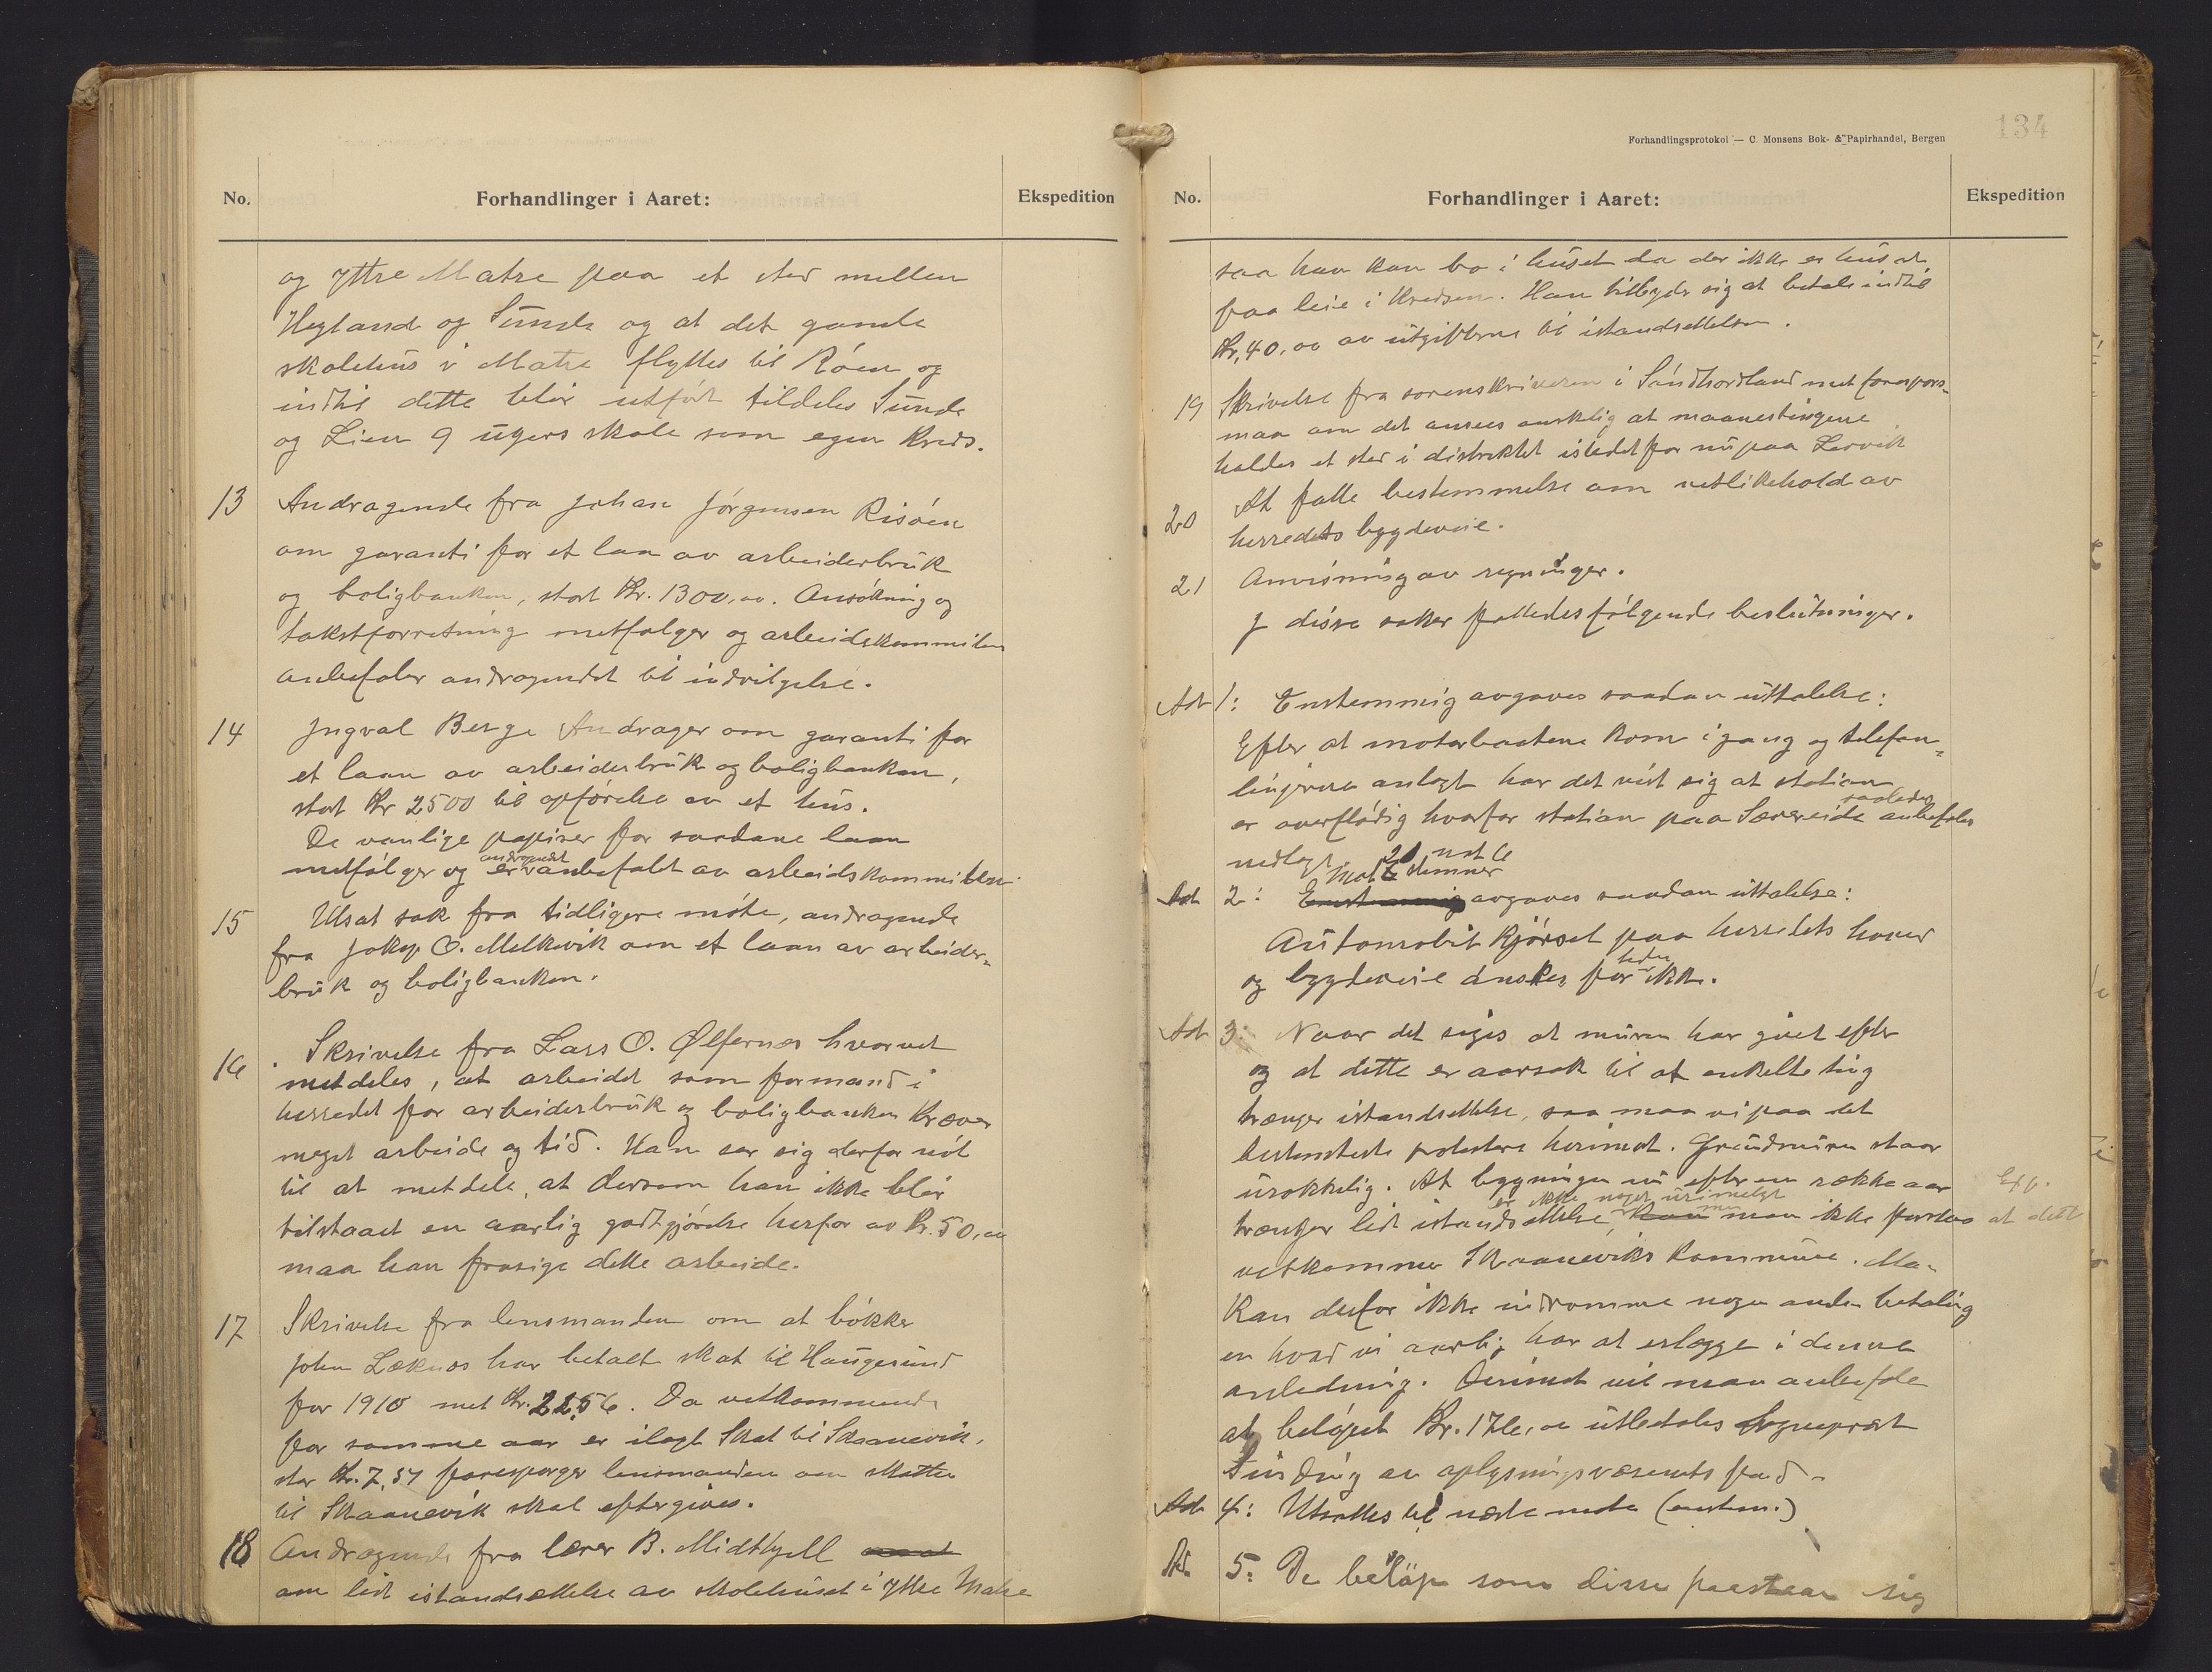 No.
Forhandlinger i Aaret:
Ekspedition
og Yttre Matre paa et sted mellem
Hegland og Sunde og at det gamle
skolehus i Matre flyttes til Röen og
indtil dette blir utfört tildeles Sunde
og Lien 9 ugers skole som egen Kreds.
13 Andragende fra Johan Jörgensen Risöen
om garanti for et laan av arbeiderbruk
og boligbanken, stort Kr. 1300,00. Ansökning og
takstforretning metfölger og arbeidskommiteen
anbefaler andragendet til indvilgelse.
14 Ingval Berge Andrager om garanti for
et laan av arbeiderbruk og boligbanken,
stort Kr 2500 til opförelse av et hus.
De vanlige papirer for saadane laan
andragendet
metfölger og er anbefalt av arbeidskommiteen.
15 Utsat sak fra tidligere möte, andragende
fra Jakop O. Melkevik om et laan av arbeider=
bruk og boligbanken.
16 Skrivelse fra Lars O. Ølfernes hvorvet
metdeles, at arbeidet som formand i
herredet for arbeiderbruk og boligbanken Kræver
meget arbeide og tid. Han ser sig derfor nöt
til at metdele, at dersom han ikke blir
tilstaaet en aarlig godtgjörelse herfor av Kr. 50,00
maa han frasige dette arbeide.
17 Skrivelse fra lensmanden om at bökker
John Læknes har betalt skat til Haugesund
for 1910 met Kr. 22,56. Da vetkommende
for samme aar er ilagt Skat til Skaanevik,
stor Kr. 7,57 forespörger lensmanden om skatten
til Skaanevik skal eftergives.
18 Andragende fra lærer B. Midthjell
om lidt istandsættelse av skolehuset i Yttre Matre
Forhandlingsprotokol — C. Monsens Bok- & Papirhandel, Bergen
134
No.
Forhandlinger i Aaret:
Ekspedition
saa han kan bo i huset da der ikke er hus at
faa leie i Kredsen. Han tilbyder sig at betale indtil
Kr. 40,00 av utgifterne til istandsettelsen.
19 Skrivelse fra sorenskriveren i Söndhordland met forespörs=
maa om det ansees önskelig at maanestingene
holdes et sted i distriktet istedetfor nu paa Lervik
20 At fatte bestemmelse om vetlikehold av
herredets bygdeveie.
21 Anvisning av regninger.
I disse saker fattedes fölgende beslutninger.
Ad 1: Enstemmig avgaves saadan uttalelse:
Efter at motorbaatene kom i gang og telefon=
linjerne anlagt har det vist sig at station
saaledes
er overflödig hvorfor station paa Sævereide anbefales
nedlagt. 20 mot 6
stemmer
Ad 2: Enstemmig avgaves saadan uttalelse:
Automobil Kjörsel paa herredets hoved
tiden
og bygdeveie önskes for ikke.
Ad 3: Naar det siges at muren har givet efter
og at dette er aarsak til at enkelte ting
trænger istandsettelse, saa maa vi paa det
bestemteste protestere herimot. Grundmuren staar
urokkelig. At bygningen nu efter en række aar
er ikke noget urimeligt
trænger lidt istandsettelse, Kan man ikke forstaa at dette
Exp.
vetkommer Skaaneviks Kommune. Man
Kan derfor ikke indrömme nogen anden betaling
en hvad vi aarlig har at erlægge i denne
anledning. Derimot vil man anbefale
at belöpet Kr. 176,00 utbetales Sogneprest
Sinding av oplysningsvæsenets fond.
Ad 4: Utsættes til næste möte (enstem.)
Ad. 5: De belöp som disse paastaar sig